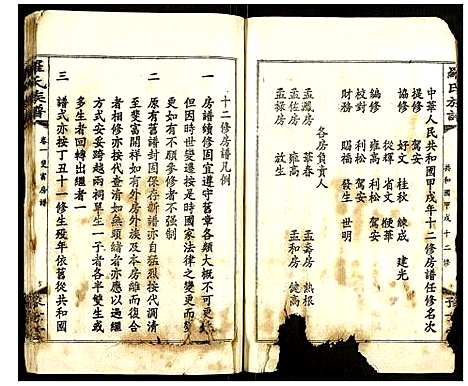 中華人民共和國甲戌年十二修房譜任修名次
提修 駕安
協修 好文 桂秋 練成 建光
從輝 省文 犍華
編修 雍高 利松 駕安
校對 利松 駕安
財務 賜福 發生 世明
各房負責人
孟鳳房 華春 孟壽房 熱根
孟佐房 雍高 孟和房 健高
孟採房 放生
共和國甲戌十二修
十二修房譜凡例
一 房譜續修固宜遵守舊章各類大致不變
但因時世變遷按是時國家法律之變更而變
更如有不願參修者不強制
二 原有舊譜封固保存新譜亦自猛烈按代調清
如斐富開祥如有外房外族及本房離而復合
相修亦按代查清如無嗣續者亦應以過繼
方式安妥跨越兩祠單生一子者各半雙生或
多生者一回轉出繼者一
三 譜式亦按丁丑十一修生歿年依舊從共和國
羅氏族譜
卷一 斐富房譜